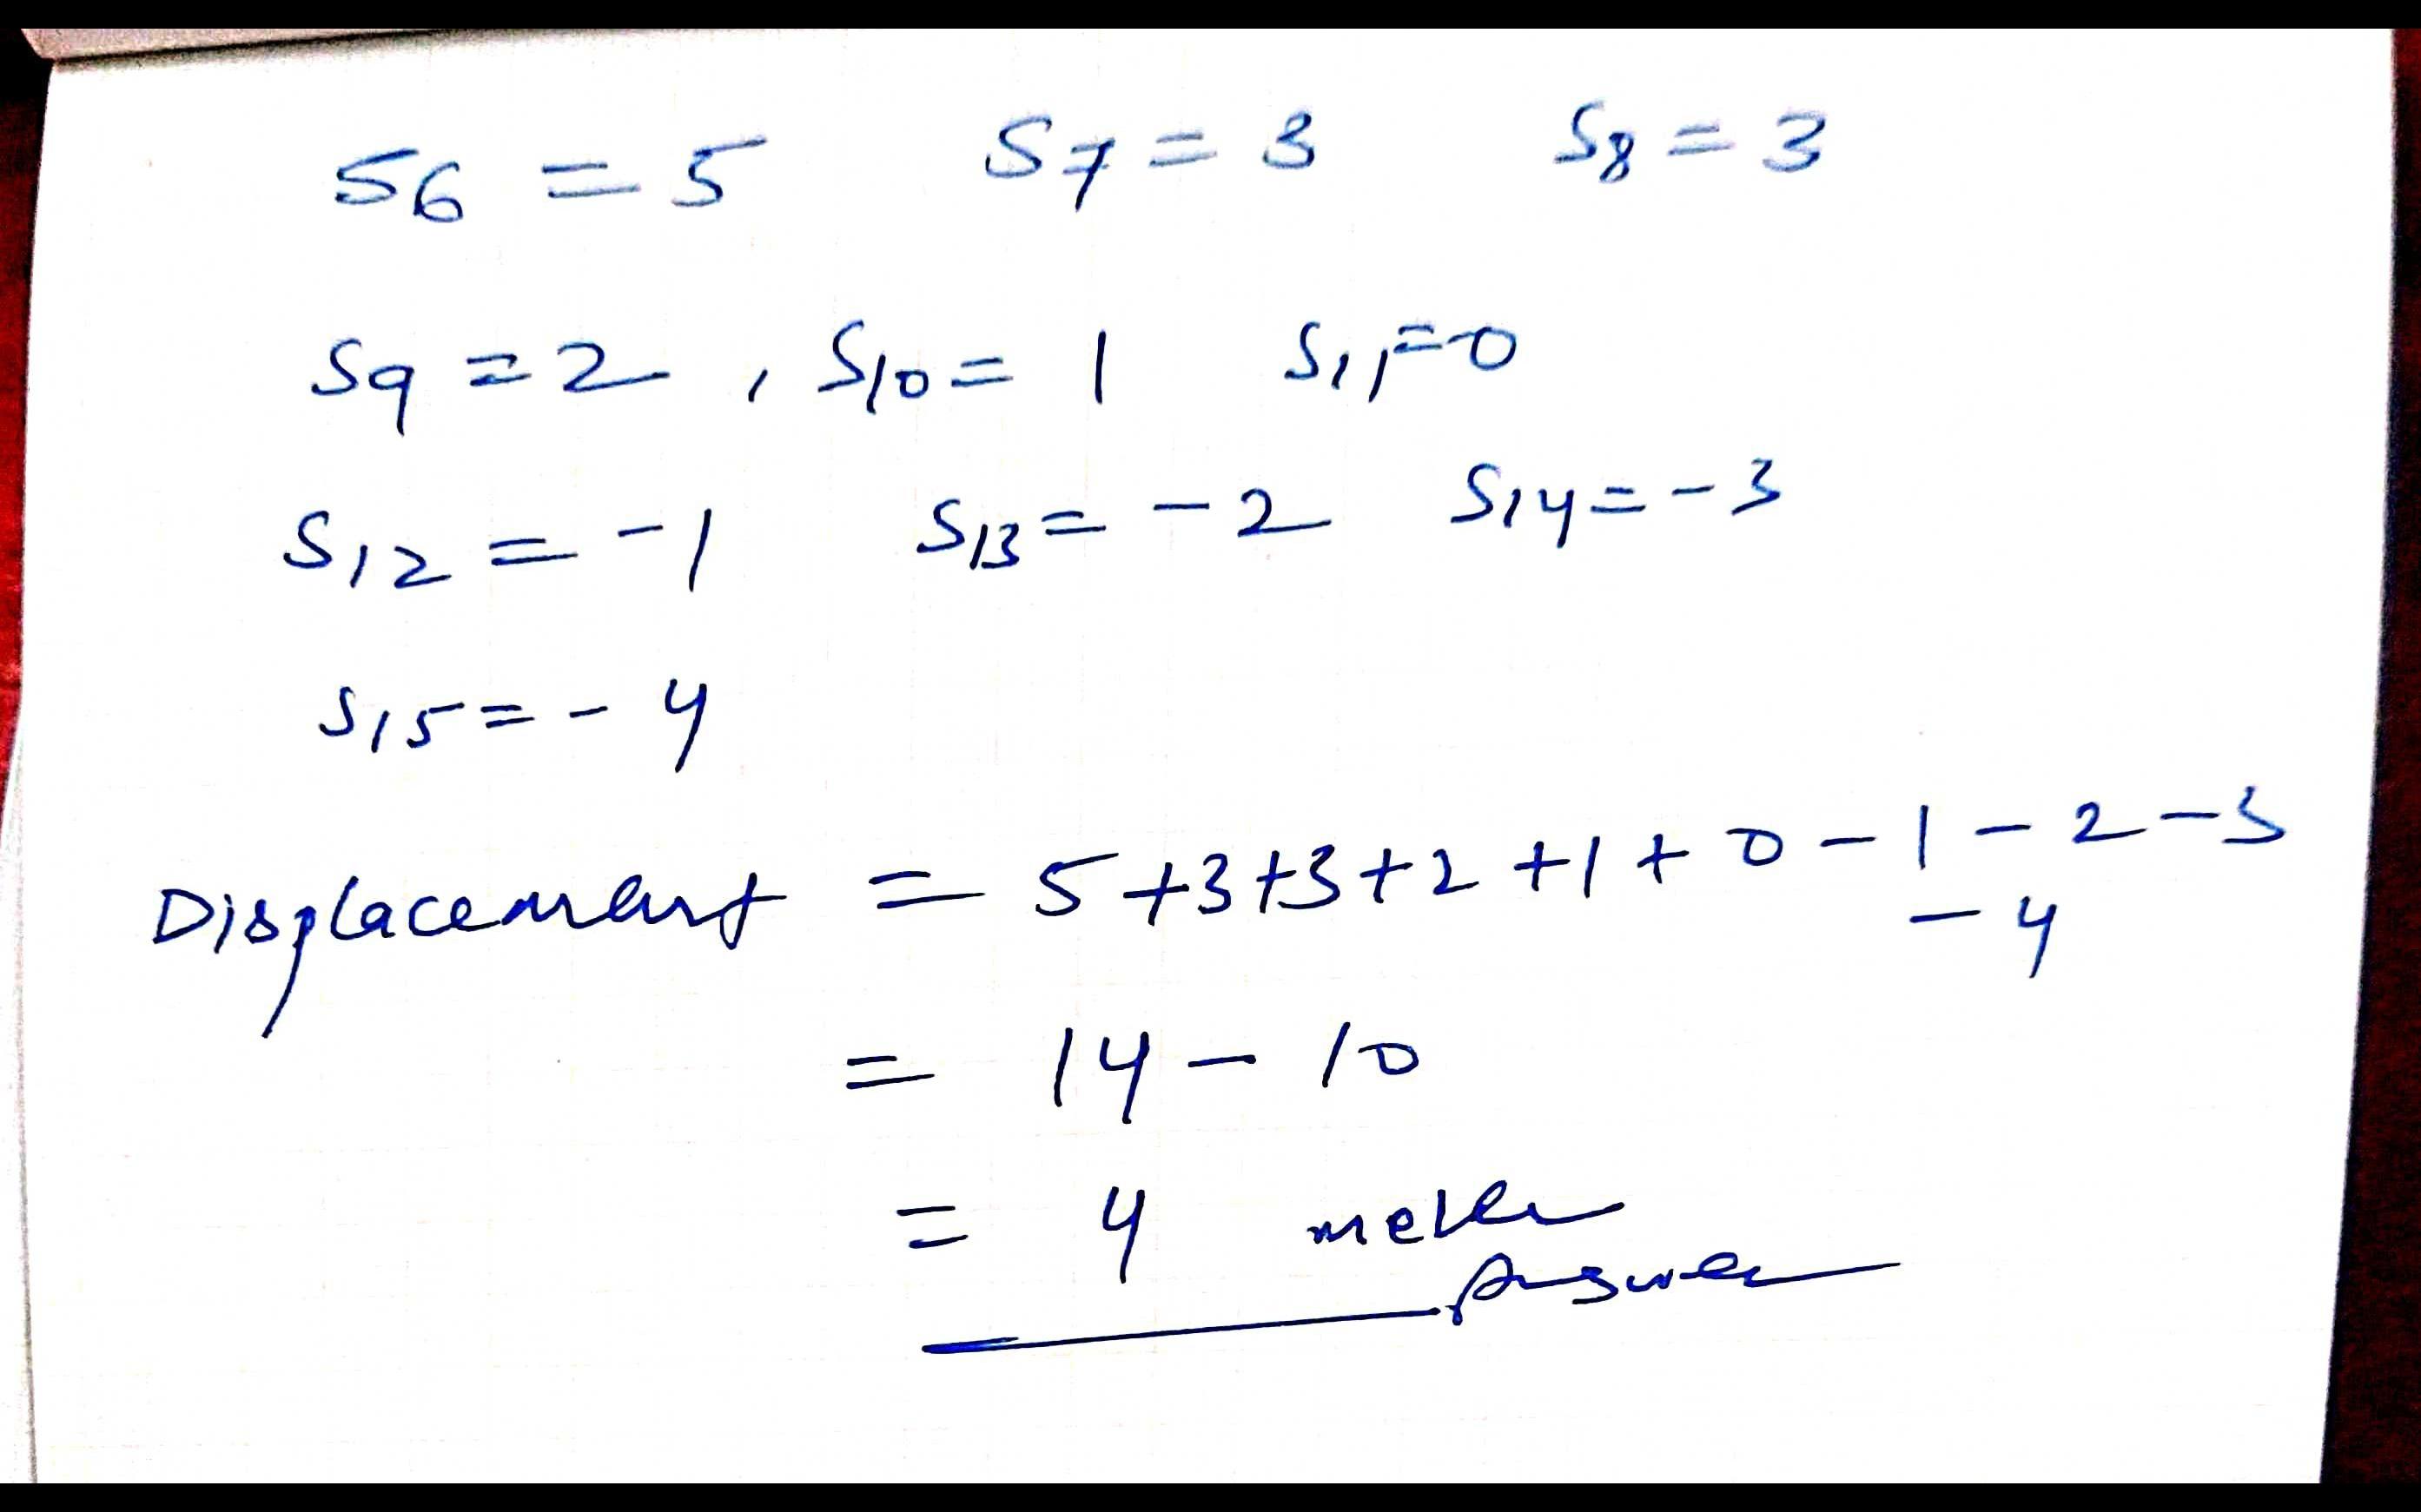 S6 = 5 S7 = 3 S8 = 3
S9 = 2 , S10 = 1 S11 = 0
S12 = -1 S13 = -2 S14 = -3
S15 = -4
Displacement = 5+3+3+2+1+0-1-2-3
-4
= 14 - 10
= 4 meter
Answer